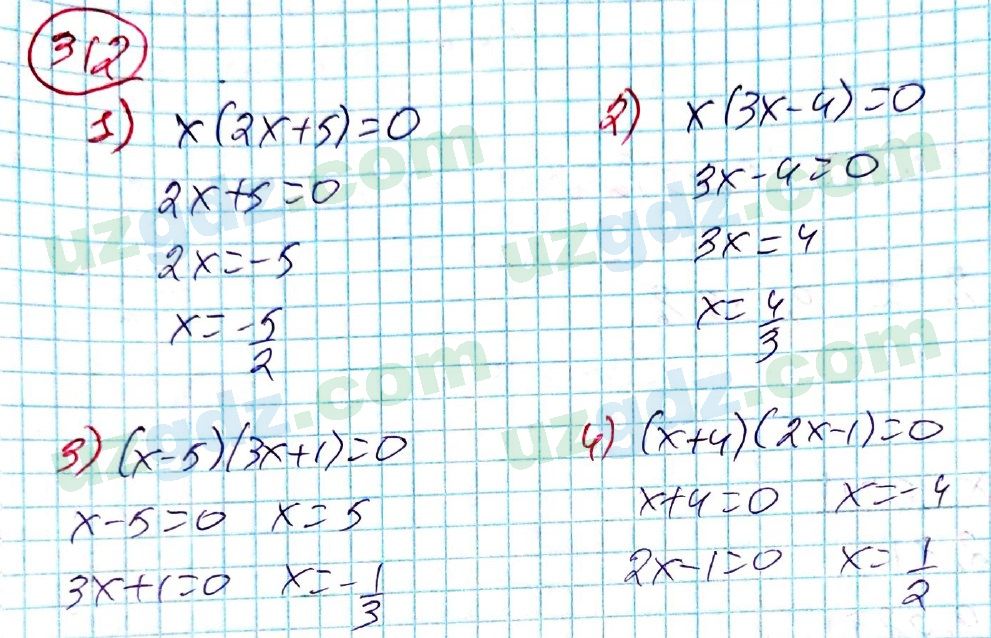 312
1) x(2x+5)=0
2x+5=0
2x=-5
x=-5/2
2) x(3x-4)=0
3x-4=0
3x=4
x=4/3
3) (x-5)(3x+1)=0
x-5=0 x=5
3x+1=0 x=-1/3
4) (x+4)(2x-1)=0
x+4=0 x=-4
2x-1=0 x=1/2
uzgdz.com
uzgdz.com
uzgdz.com
uzgdz.com